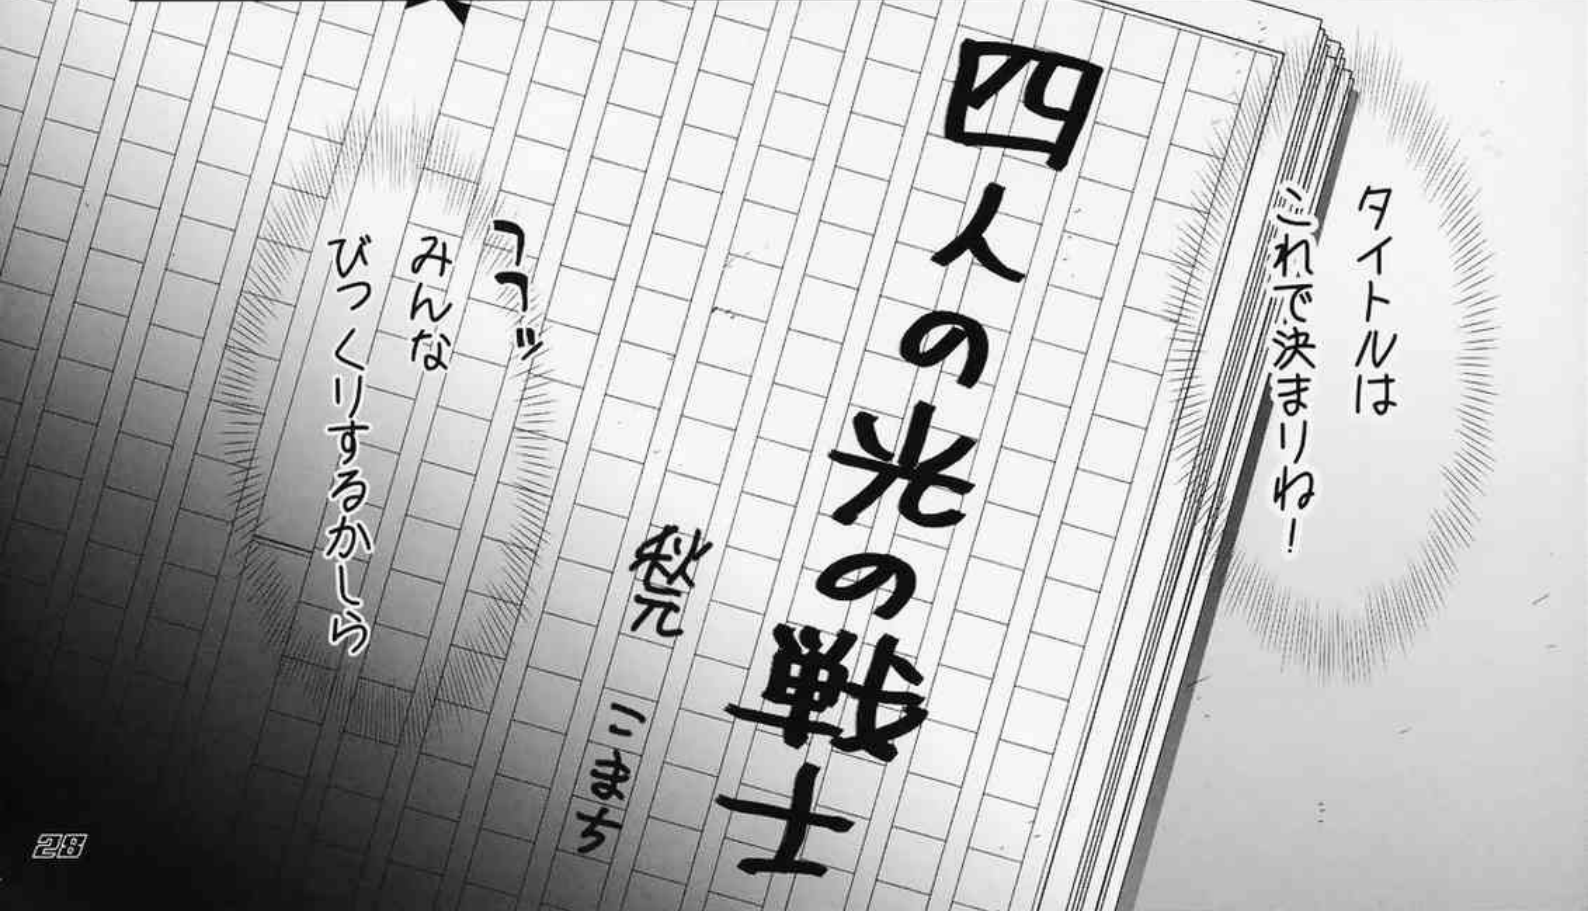 タイトルは
これで決まりね!
四人の光の戦士
秋元 こまち
フフッ
みんな
びっくりするかしら
28